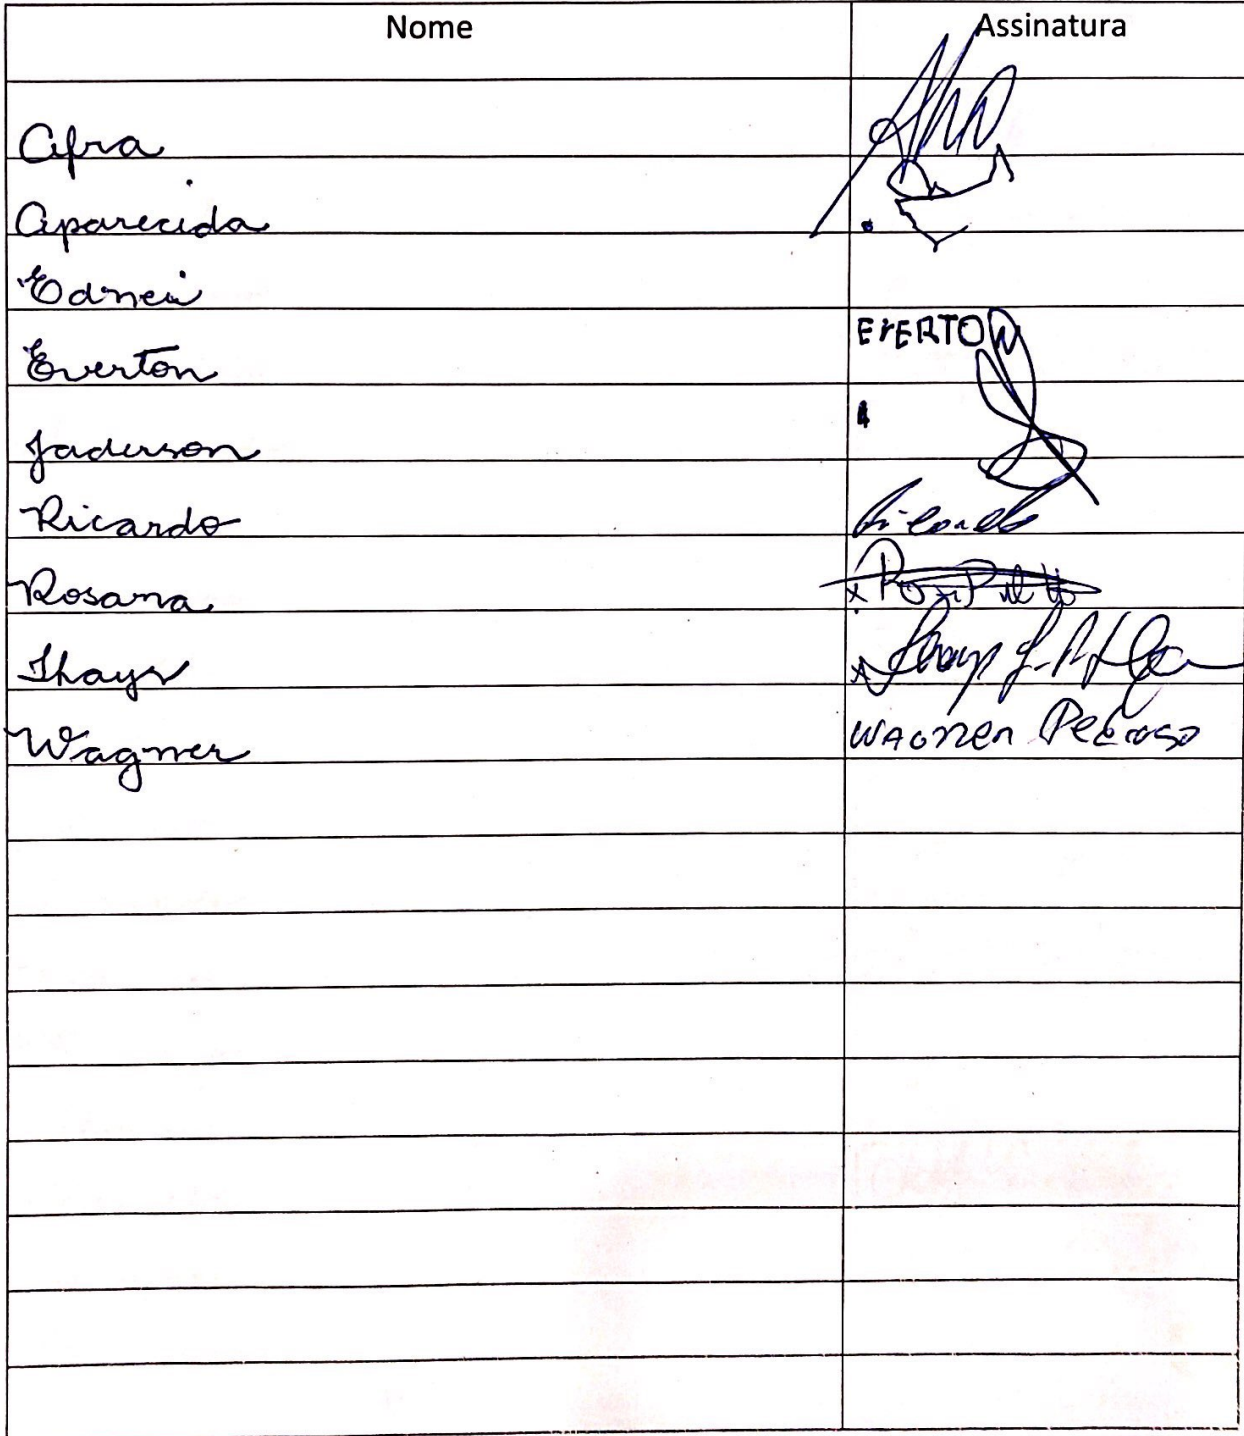 Nome Assinatura
Afra
Aparecida
Ednei
Everton EVERTON
Jaderson
Ricardo Ricardo
Rosana
Thays
Wagner WAGNER Pedroso